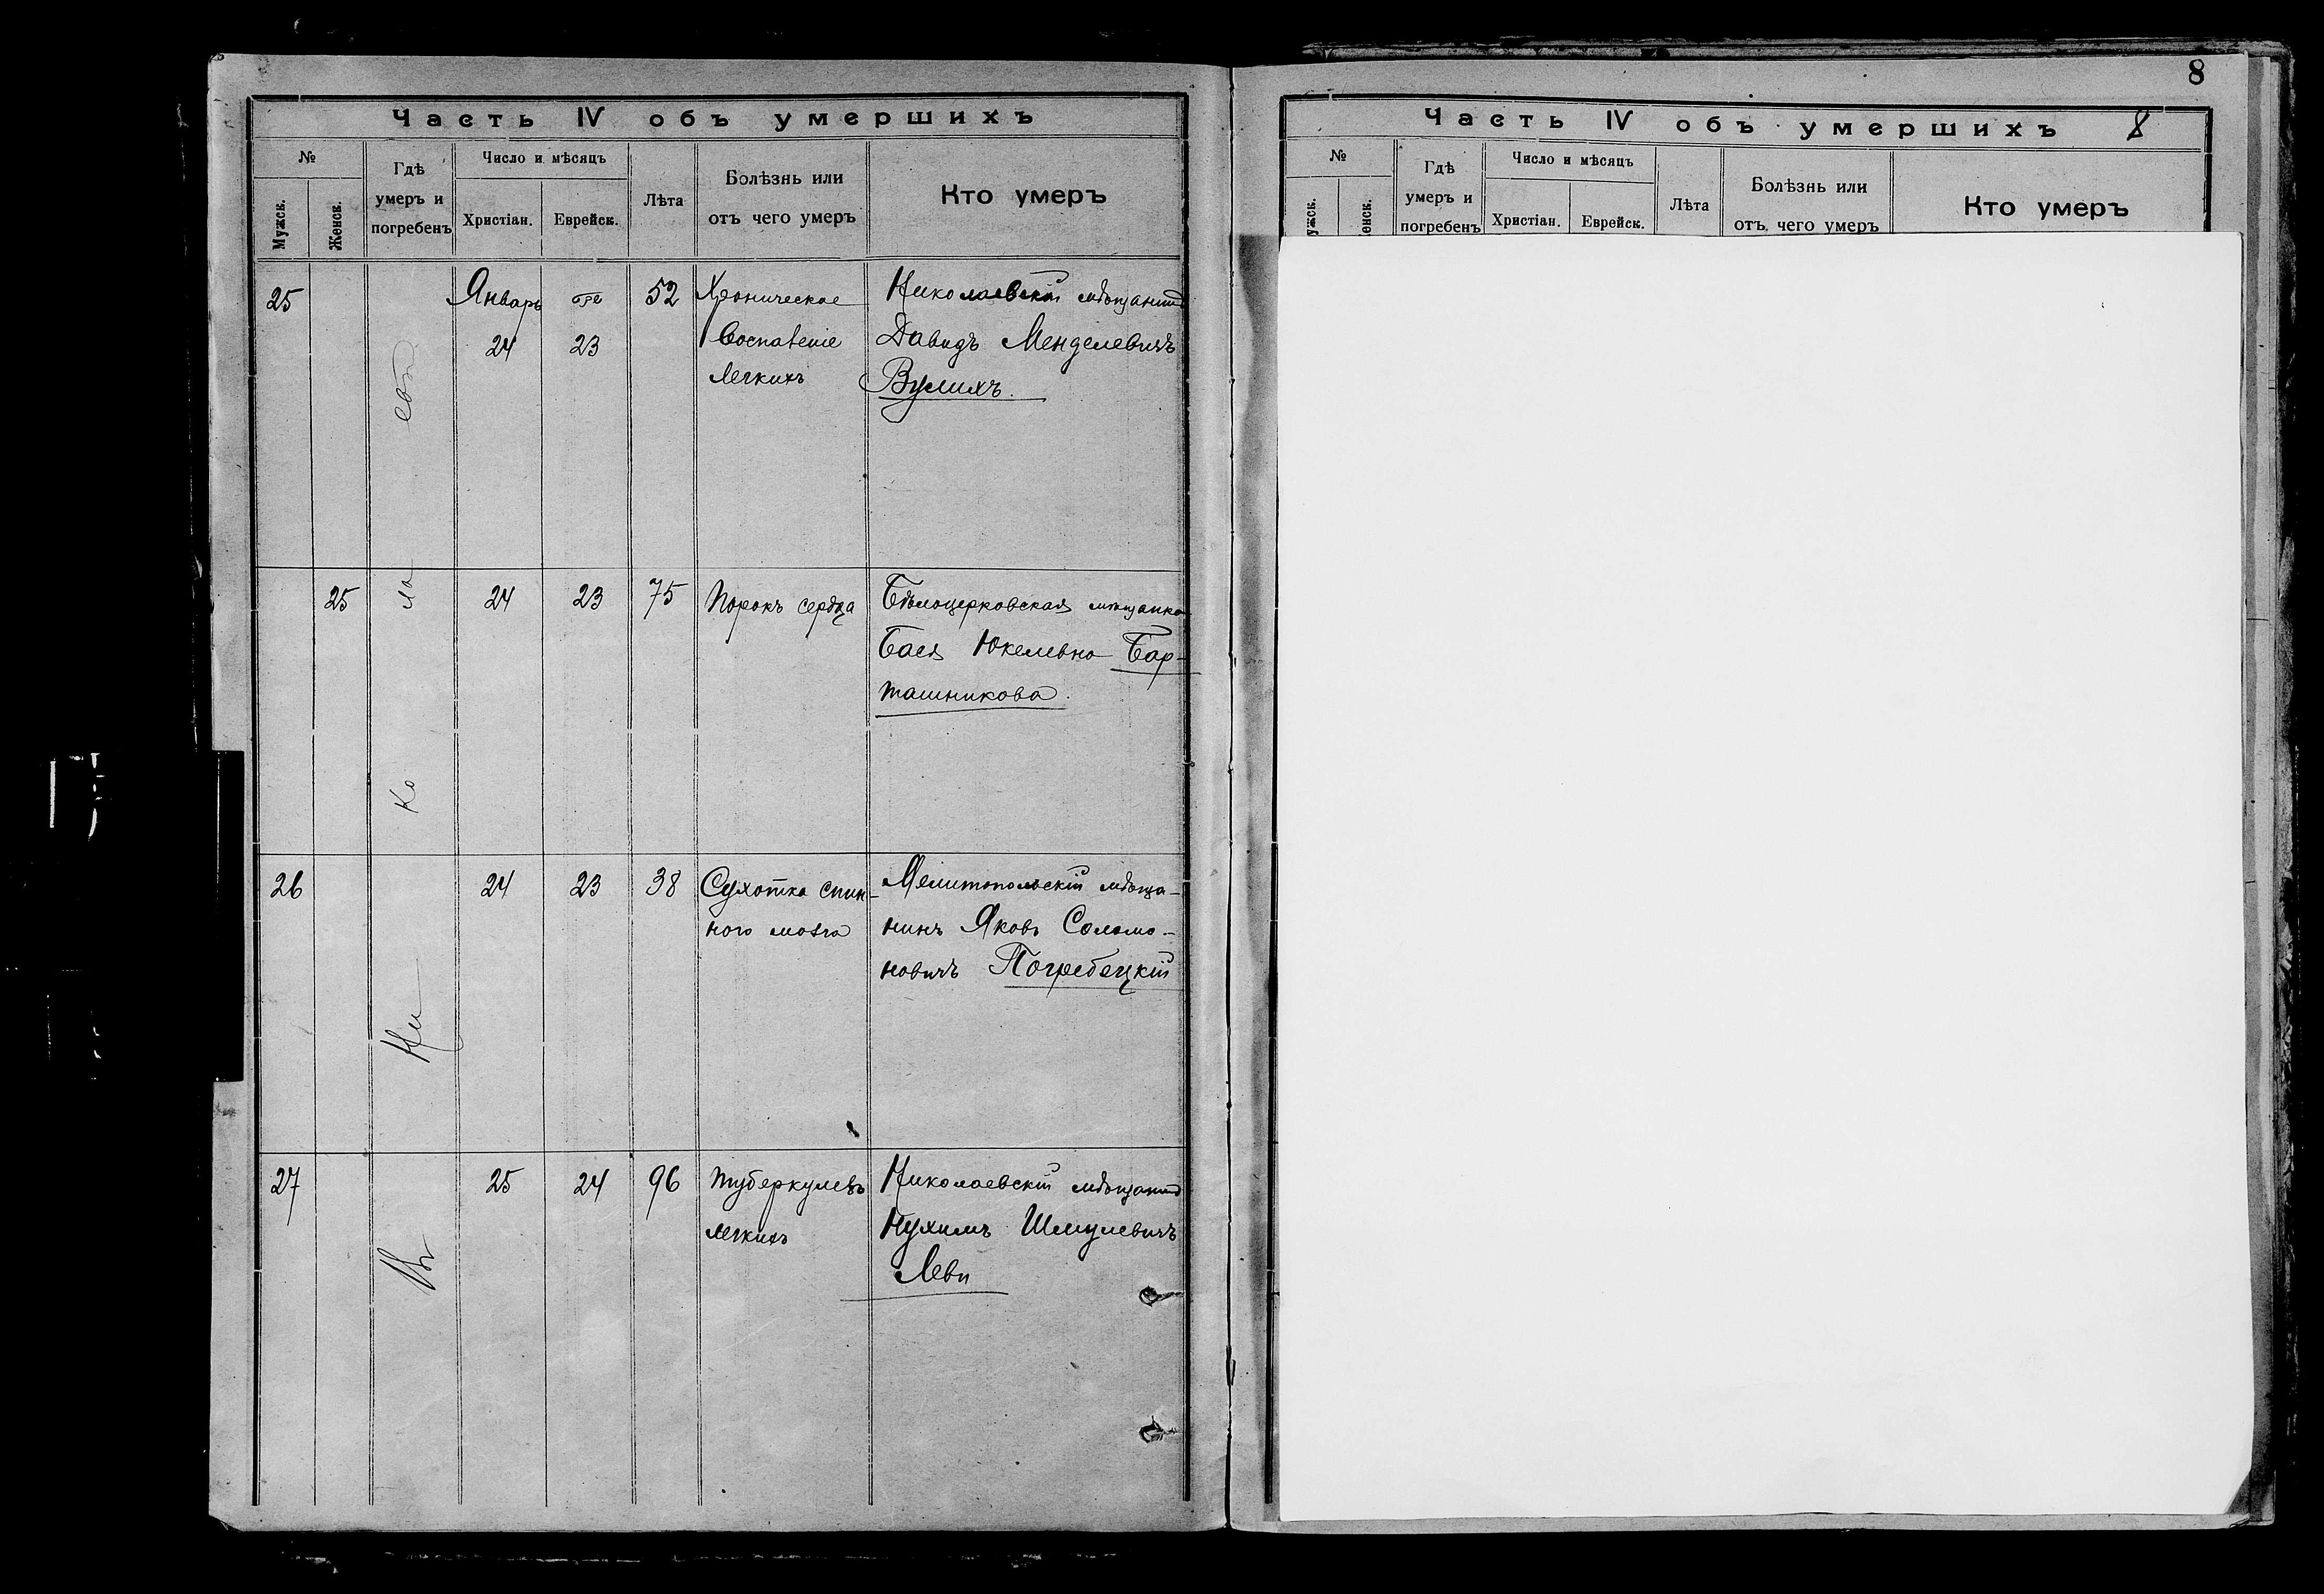 Часть IV объ умершихъ
№
Мужск.
Женск.
Гдѣ
умеръ и
погребенъ
Число и мѣсяцъ
Христіан.
Еврейск.
Лѣта
Болѣзнь или
отъ чего умеръ
Кто умеръ
25
Январь
24
23
52
Хроническое
Воспаленіе
легкихъ
Николаевскій мѣщанинъ
Давидъ Менделевичъ
Вулихъ.
25
24
23
75
Порокъ сердца
Бѣлоцерковская мѣщанка
Бася Юкелевна Бар-
ташникова.
26
24
23
38
Сухотка спин-
ного мозга
Мелитопольскій мѣща-
нинъ Яковъ Соломо-
новичъ Погребецкій
27
25
24
96
Туберкулезъ
легкихъ
Николаевскій мѣщанинъ
Нухимъ Шмулевичъ
Леви
Въ Николаевѣ
8
Часть IV объ умершихъ 8
№
ужск.
енск.
Гдѣ
умеръ и
погребенъ
Число и мѣсяцъ
Христіан.
Еврейск.
Лѣта
Болѣзнь или
отъ чего умеръ
Кто умеръ